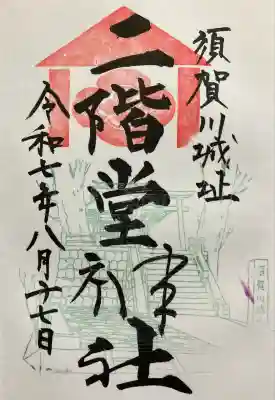 須賀川城址
二階堂神社
令和七年八月十七日